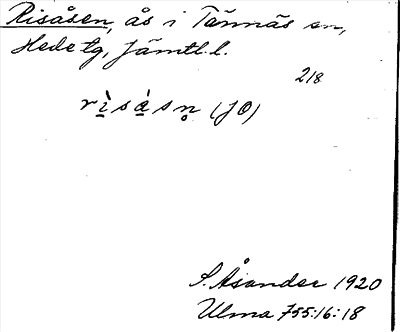 Risåsen, ås i Tännäs sn,
Hede tg, Jämtl. l.
2/8
rìsàsn̥ (JO)
S. Åsander 1920
Ulma 755:16:18